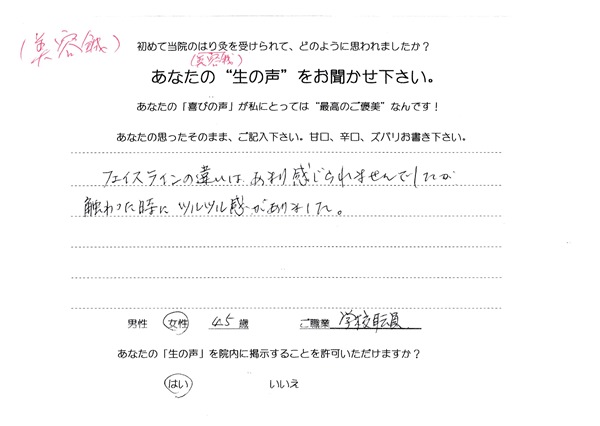 (美容鍼)
初めて当院のはり灸を受けられて、どのように思われましたか？
(美容鍼)
あなたの“生の声”をお聞かせ下さい。
あなたの「喜びの声」が私にとっては“最高のご褒美”なんです！
あなたの思ったそのまま、ご記入下さい。甘口、辛口、ズバリお書き下さい。
フェイスラインの違いは、あまり感じられませんでしたが
触わった時に ツルツル感がありました。
男性 女性 45 歳 ご職業 学校職員
あなたの「生の声」を院内に掲示することを許可いただけますか？
はい いいえ